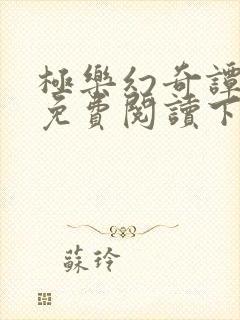 極樂幻奇譚
免費閱讀下
蘇玲